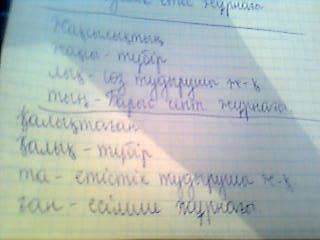 журнағы
Жақсылықтың
жақсы - түбір
лық - сөз тудырушы ж-қ
тың - барыс септ. журнағы
Қалықтаған
қалық - түбір
та - етістік тудырушы ж-қ
ған - есімше журнағы.